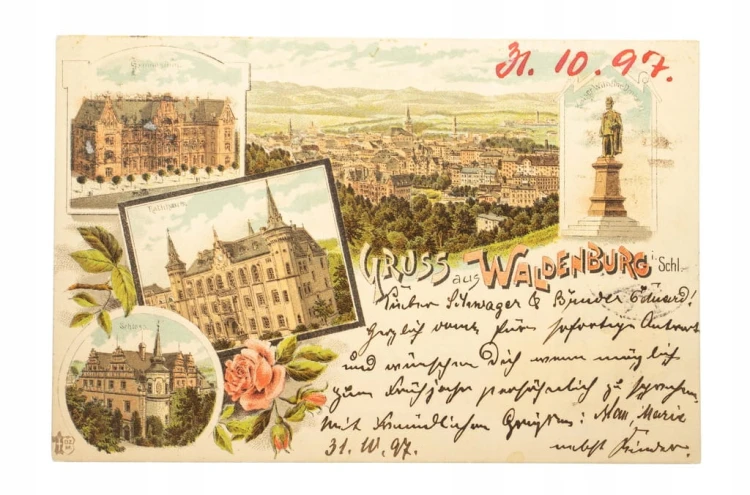 31. 10. 97.
Rathhaus
Schloss
GRUSS aus WALDENBURG i. Schl.
Lieber Schwager & Bruder Eduard!
Herzlich dank für sofortige Antwort
und wünschen Dich wenn möglich
zum Frühjahr persönlich zu sprechen
Mit freundlichen Grüßen: Max, Marie
31. 10. 97. nebst Kinder.